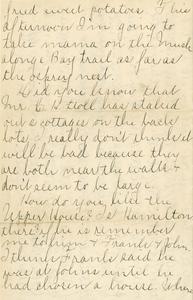 fried sweet potatoes. This
afternoon I'm going to
take mama on the Much
along Bay trail as far as
the osprey nest.
Did you know that
Mr. C. B. Stoll has staked
out 2 cottages on the back
lots & really don't think it
will be bad because they
are both near the walk &
don't seem to be large.
How do you like the
Upper Route? Is Hamilton
there? If he is remember
me to him & Frank & John.
I think Frank said he
was at Johns until he
had chosen a house. When